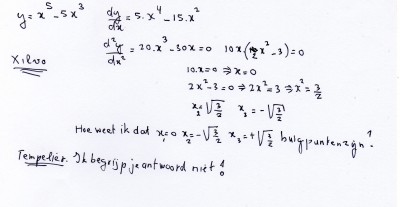 y = x⁵ - 5x³    dy/dx = 5.x⁴ - 15.x²
d²y/dx² = 20.x³ - 30x = 0    10x.(2x² - 3) = 0
Xilvo
10.x = 0 ⇒ x = 0
2x² - 3 = 0 ⇒ 2x² = 3 ⇒ x² = 3/2
x = √(3/2)    x₃ = -√(3/2)
Hoe weet ik dat x₁=0 x₂ = -√(3/2) x₃ = +√(3/2) buigpunten zijn?
Tempelier. Ik begrijp je antwoord niet!